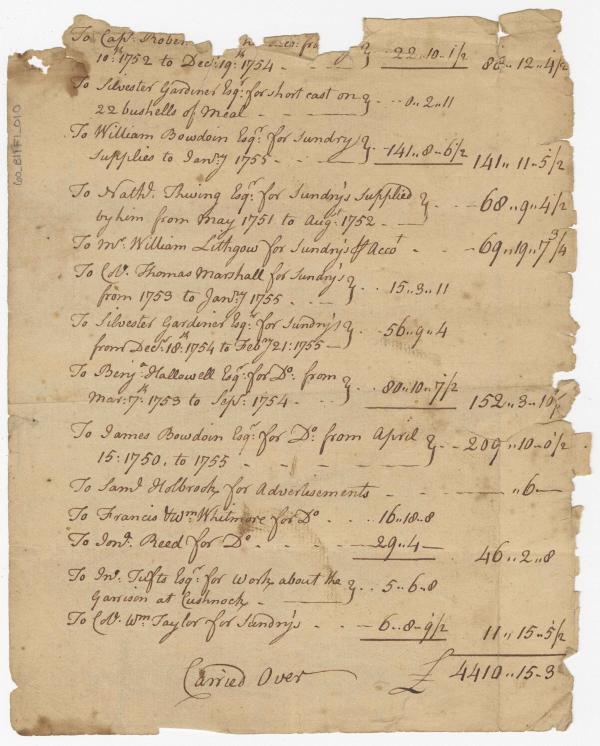 To Capt. Rober
10th: 1752 to Decr: 19th: 1754 - - - } 22..10..1/2 86..12..4/2
To Silvester Gardiner Esqr: for short cast on
22 bushells of Meal - - - } - - 0..2..11
To William Bowdoin Esqr. for Sundry
Supplies to Janry 1755 - - - } - 141..8-6/2 141..11-5/2
To Nathl. Thwing Esqr: for Sundry's Supplied
by him from may 1751 to Augst 1752 - - } - - 68..9..4/2
To Mr. William Lithgow for Sundry's ⅌ Accot - - 69..19..7 3/4
To Colo. Thomas Marshall for Sundry's
from 1753 to Janry 1755 - - - } - - 15..3..11
To Silvester Gardiner Esqr: for Sundry's
from Decr: 18th: 1754 to Febry 21: 1755 - } - 56..9..4
To Benja Hallowell Esqr: for Do: from
Mar: 7th: 1753 to Sepr: 1754 - - } - 80..10..7/2 152..3..10/2
To James Bowdoin Esqr: for Do: from April
15: 1750, to 1755 - - - } - - 209..10-0/2
To Saml Holbrook for Advertisements - - - ..6-
To Francis & Wm Whitmore for Do - - - 16..18-8
To Jona. Reed for Do - - - 29..4- 46..2..8
To Jno. Tufts Esqr: for work about the
Garrison at Cushnock - - - } - 5..6..8
To Colo. Wm Taylor for Sundry's - - - 6..8-9/2 11..15-5/2
Carried Over £ 4410..15-3